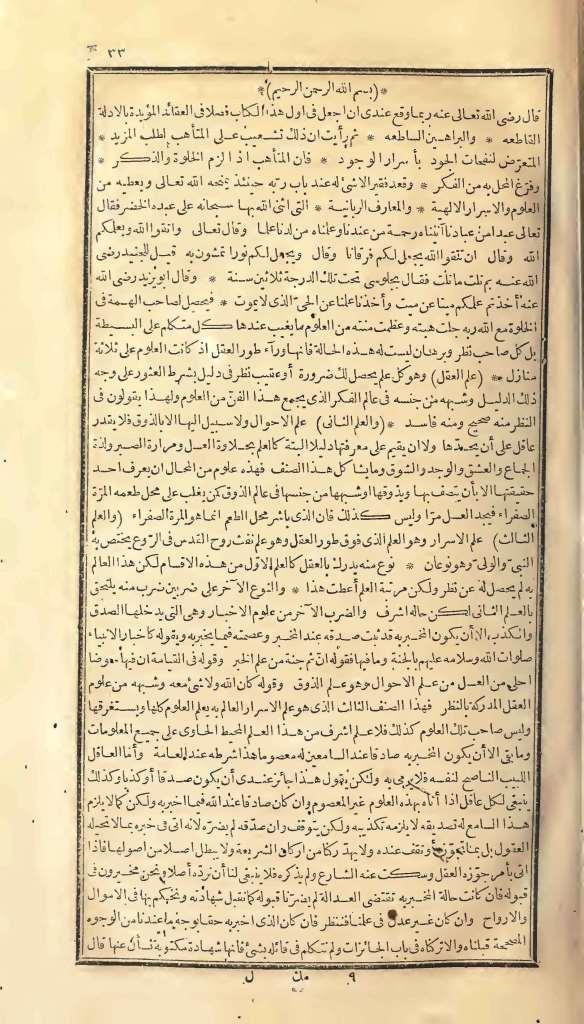 ٣٣
*(بسم الله الرحمن الرحيم)*
قال رضى الله تعالى عنه ربما وقع عندى ان اجعل فى اول هذا الكتاب فصلا فى العقائد المؤيدة بالادلة
القاطعه * والبراهين الساطعه * ثم رأيت ان ذلك تشعيب على المتأهب الطلب المزيد *
المتعرّض لنفحات الجود بأسرار الوجود * فان المتأهب اذا لزم الخلوة والذكر *
وفرّغ المحل به من الفكر * وقعد فقيرا لاشئ له عند باب ربه حينئذ يمنحه الله تعالى ويعطيه من
العلوم والاسرار الالهية * والمعارف الربانية * التى اثنى الله بها سبحانه على عبده الخضر فقال
تعالى عبدا من عبادنا آتيناه رحمة من عندنا وعلمناه من لدنا علما وقال تعالى واتقوا الله ويعلمكم
الله وقال ان تتقوا الله يجعل لكم فرقانا وقال ويجعل لكم نورا تمشون به قيل للجنيد رضى
الله عنه بم نلت ما نلت فقال بجلوسى تحت تلك الدرجة ثلاثين سنة * وقال ابو يزيد رضى الله
عنه أخذتم علمكم ميتا عن ميت وأخذنا علمنا عن الحىّ الذى لا يموت * فيحصل لصاحب الهمة فى
الخلوة مع الله وبه جلت هيبته وعظمت منته من العلوم ما يغيب عندها كل متكلم على البسيطة
بل كل صاحب نظر وبرهان ليست له هذه الحالة فانها ورآء طور العقل اذ كانت العلوم على ثلاثة
منازل * (علم العقل) وهو كل علم يحصل لك ضرورة أو عقيب نظر فى دليل بشرط العثور على وجه
ذلك الدليل وشبهه من جنسه فى عالم الفكر الذى يجمع هذا الفنّ من العلوم ولهذا يقولون فى
النظر منه صحيح ومنه فاسد * (والعلم الثانى) علم الاحوال ولا سبيل اليها الا بالذوق فلا يقدر
عاقل على أن يحدّها ولا ان يقيم على معرفتها دليلا البتة كالعلم بحلاوة العسل ومرارة الصبر ولذة
الجماع والعشق والوجد والشوق وما شاكل هذا الصنف فهذه علوم من المحال ان يعرف احد
حقيقتها الا بأن يتصف بها ويذوقها وشبهها من جنسها فى عالم الذوق كمن يغلب على محل طعمه المرّة
الصفراء فيجد العسل مرّا وليس كذلك فان الذى باشر محل الطعم انما هو المرة الصفراء (والعلم
الثالث) علم الاسرار وهو العلم الذى فوق طور العقل وهو علم نفث روح القدس فى الروع يختص به
النبىّ والولىّ وهو نوعان * نوع منه يدرك بالعقل كالعلم الاوّل من هذه الاقسام لكن هذا العالم
به لم يحصل له عن نظر ولكن مرتبة العلم أعطت هذا * والنوع الآخر على ضربين ضرب منه يلتحق
بالعلم الثانى لكن حاله اشرف والضرب الآخر من علوم الاخبار وهى التى يدخلها الصدق
والكذب الا أن يكون المخبر به قد ثبت صدقه عند المخبر وعصمته فيما يخبر به ويقوله كاخبار الانبياء
صلوات الله وسلامه عليهم بالجنة وما فيها فقوله انّ ثم جنة من علم الخبر وقوله فى القيامة ان فيها حوضا
احلى من العسل من علم الاحوال وهو علم الذوق وقوله كان الله ولا شئ معه وشبهه من علوم
العقل المدركة بالنظر فهذا الصنف الثالث الذى هو علم الاسرار العالم به يعلم العلوم كلها ويستغرقها
وليس صاحب تلك العلوم كذلك فلا علم اشرف من هذا العلم المحيط الحاوى على جميع المعلومات
وما بقى الا أن يكون المخبر به صادقا عند السامعين له معصوما هذا شرطه عند العامة وأما العاقل
اللبيب الناصح لنفسه فلا يرمى به ولكن يقول هذا جائز عندى أن يكون صدقا أو كذبا وكذلك
ينبغى لكل عاقل اذا أتاه بهذه العلوم غير المعصوم وان كان صادقا عند الله فيما اخبر به ولكن كما لا يلزم
هذا السامع له تصديقه لا يلزمه تكذيبه ولكن يتوقف وان صدّقه لم يضرّه لانه اتى فى خبره بما لا تحيله
العقول بل بما تجوّزه أو تقف عنده ولا يهدّ ركنا من اركان الشريعة ولا يبطل اصلا من اصولها فاذا
اتى بأمر جوّزه العقل وسكت عنه الشارع ولم يذكره فلا ينبغى لنا أن نردّه أصلا ونحن مخيرون فى
قبوله فان كانت حالة المخبر به تقتضى العدالة لم يضرّنا قبوله كما نقبل شهادته ونحكم بها فى الاموال
والارواح وان كان غير عدل فى علمنا فننظر فان كان الذى اخبر به حقا بوجه ما عندنا من الوجوه
المصححة قبلناه والا تركناه فى باب الجائزات ولم نتكلم فى قائله بشئ فانها شهادة مكتوبة نسأل عنها قال
٩ مك ل